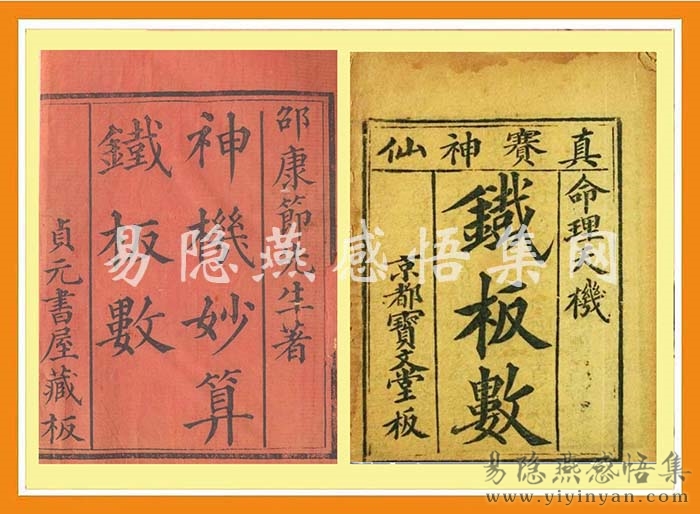 邵康節先生著
神機妙算
鐵板數
貞元書屋藏板
真賽神仙
命理天機
鐵板數
京都寶文堂板
易隐燕感悟集网
易隐燕感悟集
www.yiyinyan.com